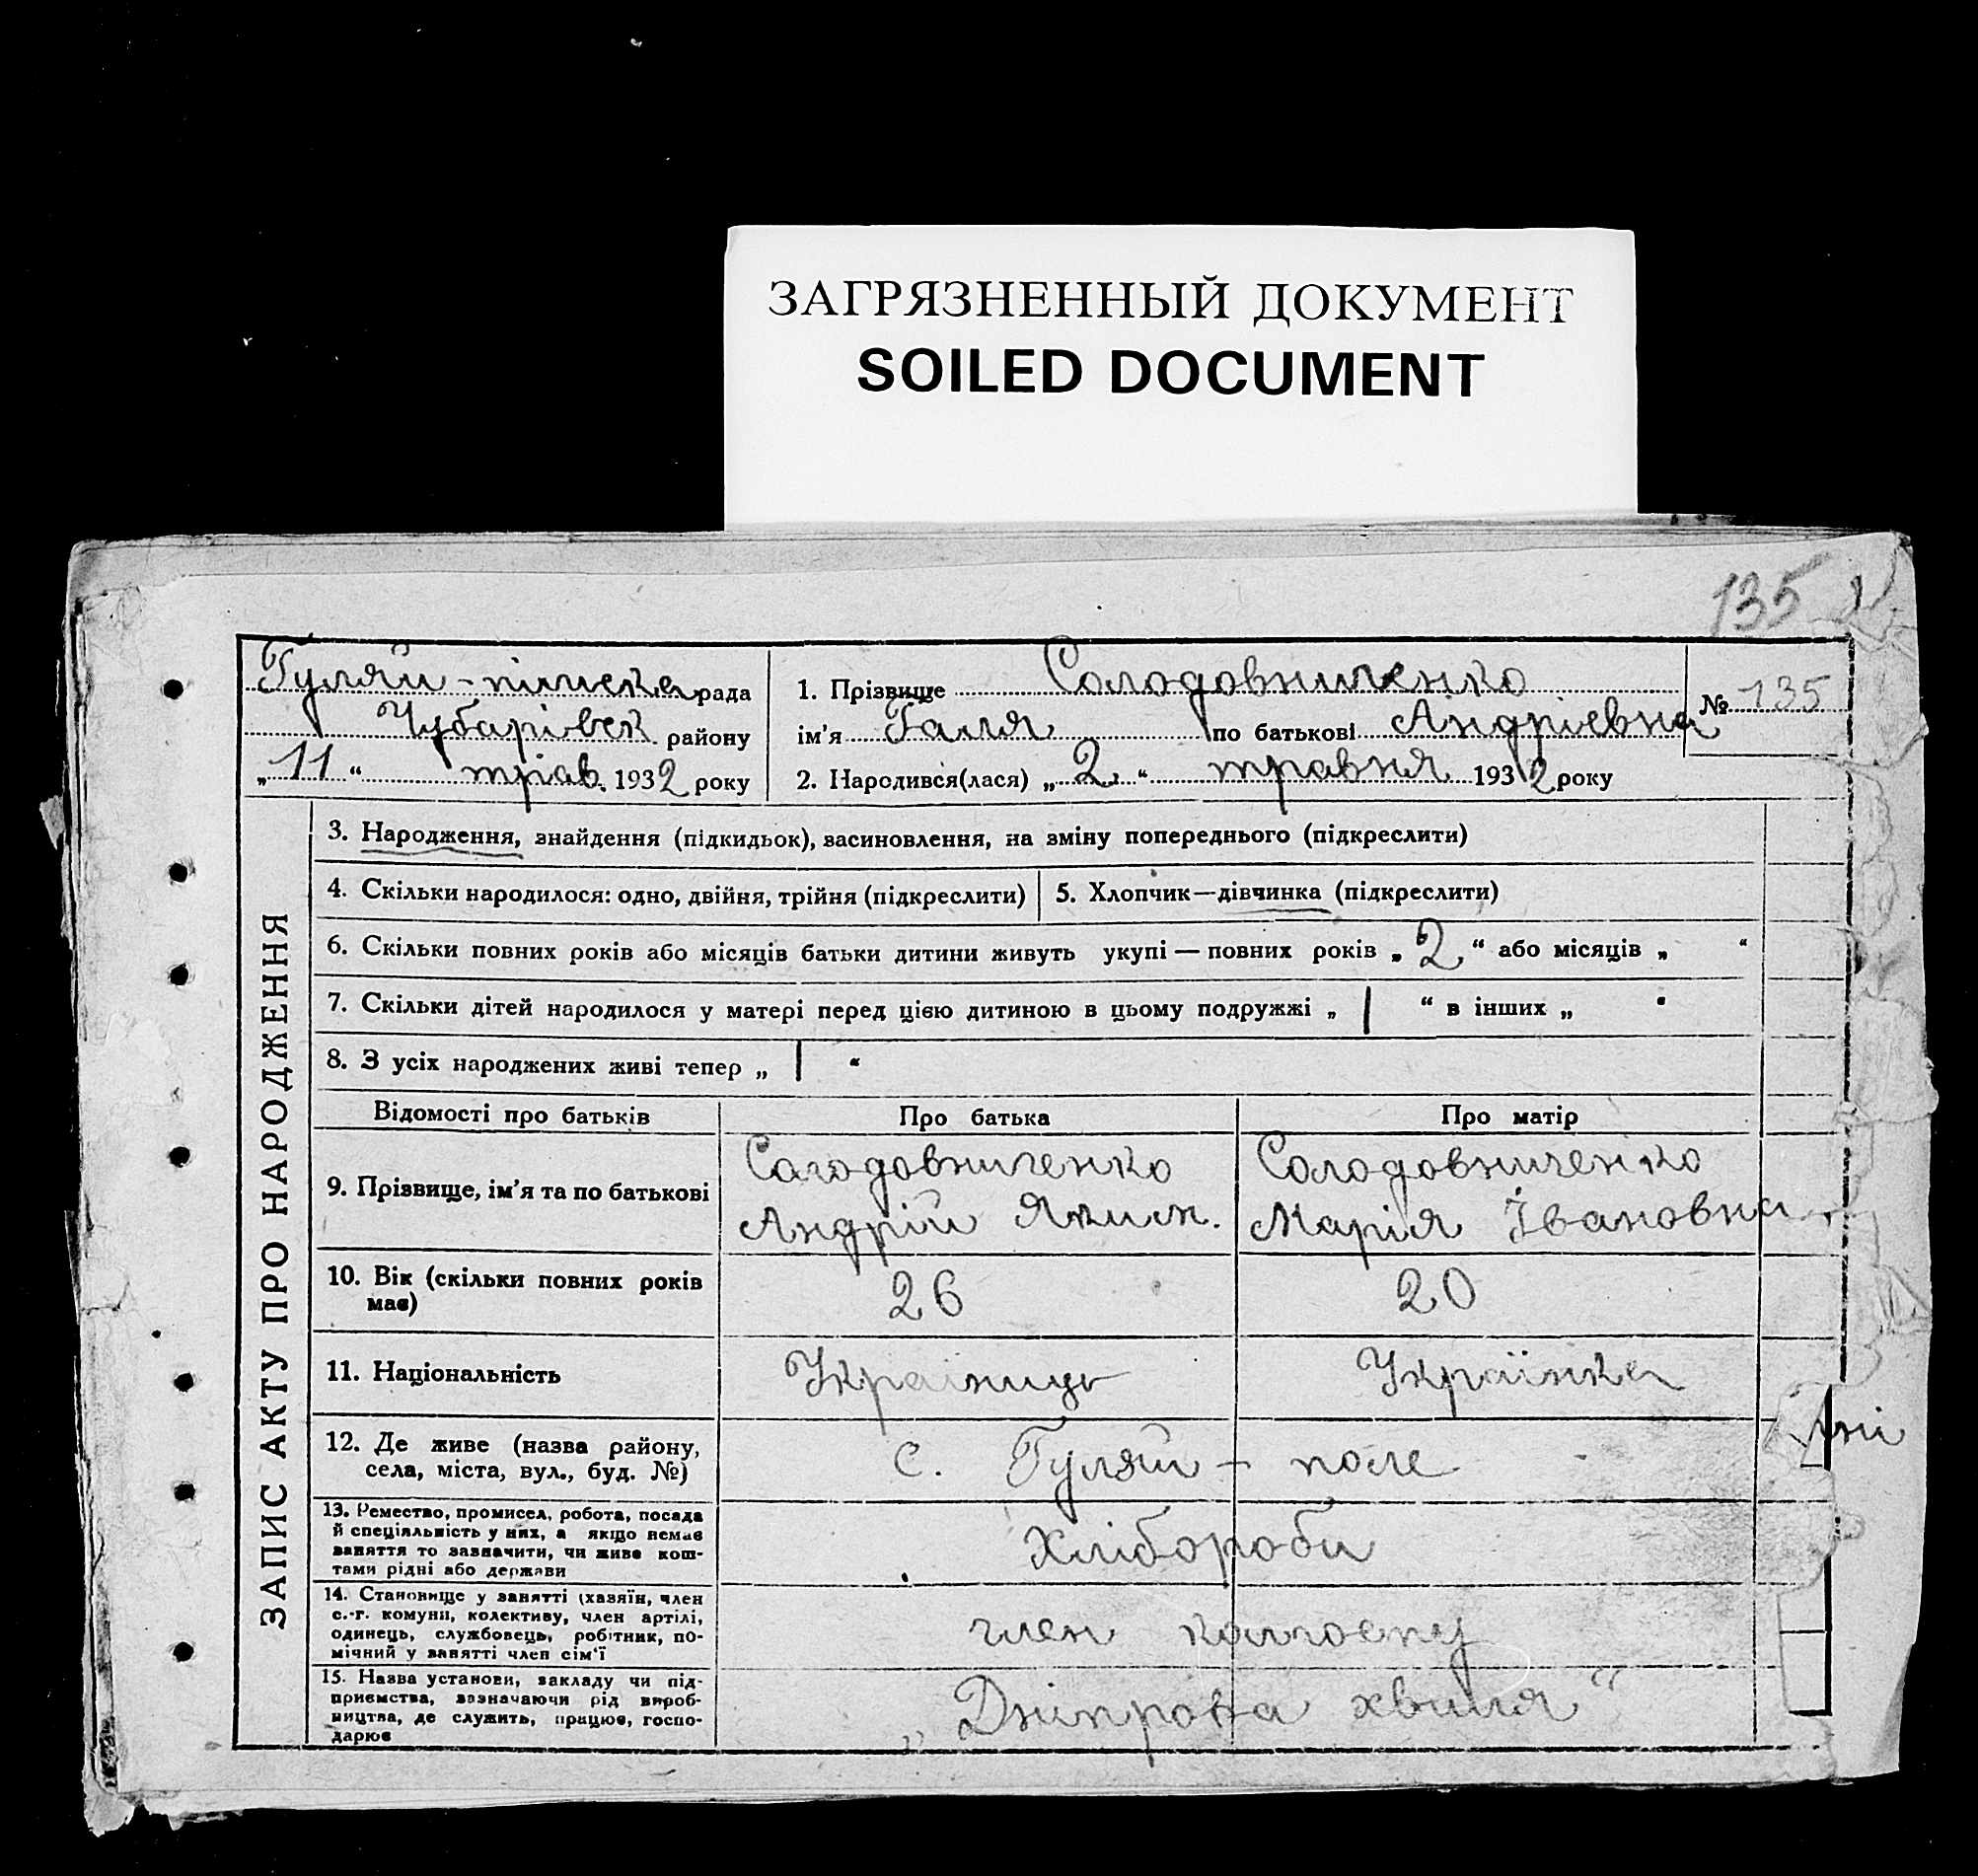 ЗАГРЯЗНЕННЫЙ ДОКУМЕНТ
SOILED DOCUMENT
135
Гуляй-пільска рада
Чубарівськ району
„11“ трав. 1932 року
1. Прізвище Солодовниченко
ім'я Галя по батькові Андріевна
2. Народився(лася) „2“ травня 1932 року
№ 135
ЗАПИС АКТУ ПРО НАРОДЖЕННЯ
3. Народження, знайдення (підкидьок), васиновлення, на зміну попереднього (підкреслити)
4. Скільки народилося: одно, двійня, трійня (підкреслити)
5. Хлопчик—дівчинка (підкреслити)
6. Скільки повних років або місяців батьки дитини живуть укупі — повних років „2“ або місяців „ “
7. Скільки дітей народилося у матері перед цією дитиною в цьому подружжі „1 “ в інших „ “
8. З усіх народжених живі тепер „1 “
Відомості про батьків Про батька Про матір
9. Прізвище, ім'я та по батькові
Солодовниченко
Андрій Яким.
Солодовниченко
Марія Івановна
10. Вік (скільки повних років
має)
26 20
11. Національність Украіниць Українка
12. Де живе (назва району,
села, міста, вул., буд. №)
с. Гуляй-поле
13. Ремество, промисел, робота, посада
й спеціяльність у них, а якщо немає
заняття то зазначити, чи живе кош-
тами рідні або держави
Хлібороби
14. Становище у занятті (хазяїн, член
с.-г. комуни, колективу, член артілі,
одинець, службовець, робітник, по-
мічний у занятті член сім'ї
член колгоспу
15. Назва установи, закладу чи під-
приємства, зазначаючи рід вироб-
ництва, де служить, працює, госпо-
дарює
„Дніпрова хвиля“